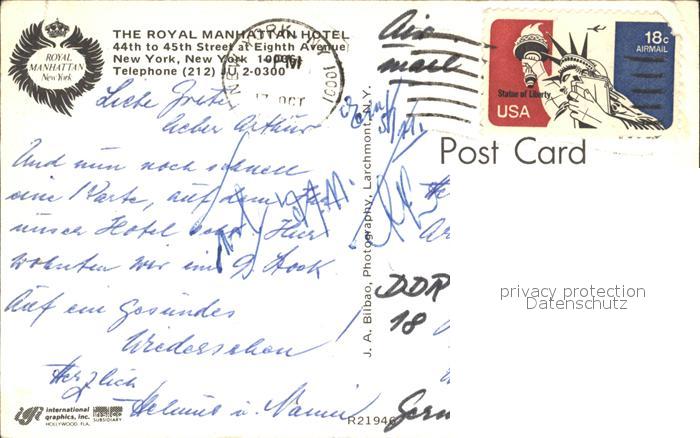 THE ROYAL MANHATTAN HOTEL
44th to 45th Street at Eighth Avenue
New York, New York 10036
Telephone (212) 2-0300
ROYAL
MANHATTAN
New York
OCT
10001
Air
mail
18c
AIRMAIL
Statue of Liberty
USA
Post Card
Liebe Grete
lieber Arthur
Und nun noch schnell
eine Karte, auf dem
unser Hotel Hier
wohnten wir im 9. Stock
Auf ein gesundes
Wiedersehen
Herzlich
Helmut u.
J. A. Bilbao, Photography, Larchmont, N.Y.
DDR
18
Germ
privacy protection
Datenschutz
igi international
graphics, inc.
HOLLYWOOD, FLA.
SUBSIDIARY
R21946